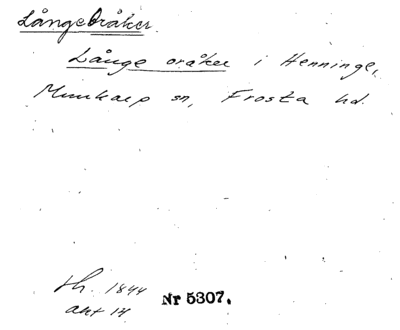 LångeOråker.
Långe oråker i Henninge,
Munkarp sn, Frosta hd.
th. 1844
akt 14
Nr 5307.